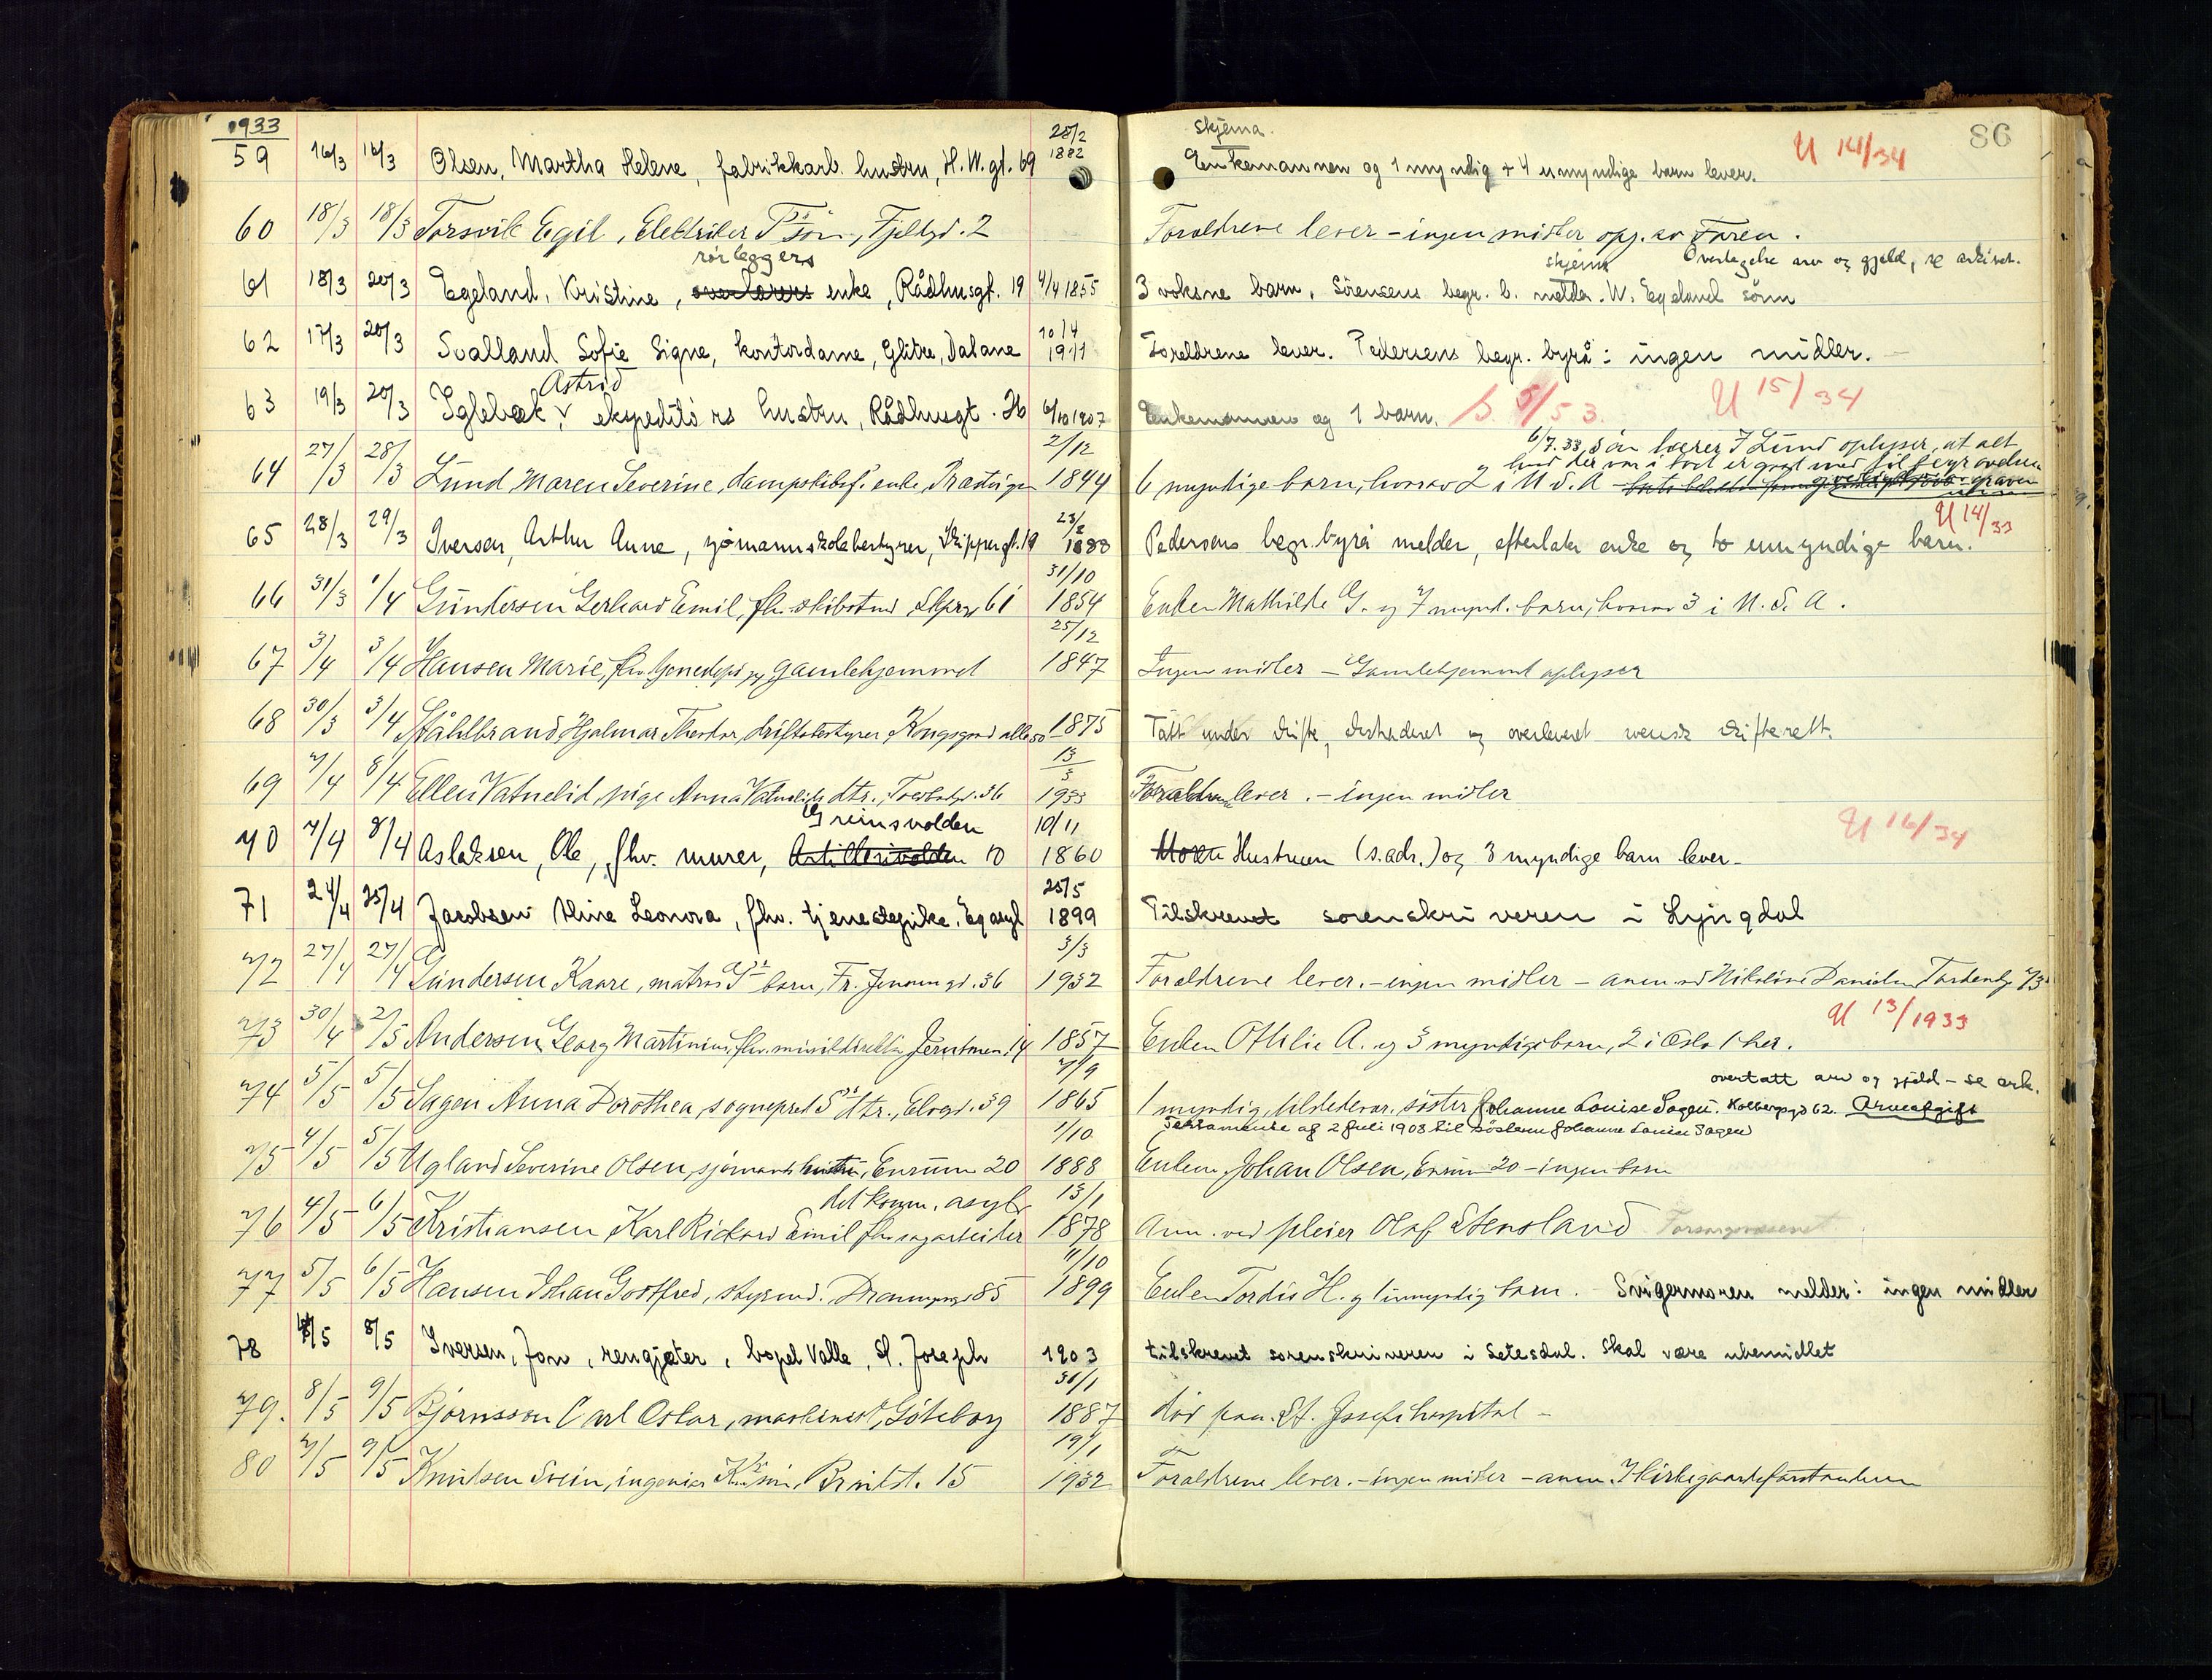 1933
86
59 16/3 16/3 Olsen, Martha Helene, fabrikkarb. hustru, H.W.gt. 69 28/2 1882 skjema. Enkemannen og 1 myndig + 4 umyndige barn lever. U 14/34
60 18/3 18/3 Torsvik Egil, Elektriker T's søn, Fjellgd. 2 Foraldrene lever - ingen midler opg. av Faren.
rørleggers skjema Overtagelse arv og gjeld, se arkivet.
61 18/3 20/3 Egeland, Kristine, enke, Rådhusgt. 19 4/4 1855 3 voksne barn, Sörensens begr. b. melder. W. Egeland sönn
62 17/3 20/3 Svalland Sofie Signe, kontordame, Glitre, Dalane 10/4 1911 Foreldrene lever. Pedersens begr. byrå: ingen midler.
Astrid
63 19/3 20/3 Eglebæk, ekspeditörs hustru, Rådhusgt. 6/10 1907 Enkemannen og 1 barn. S. 5/53. U 15/34
6/7.33, Sön lærer J Lund oplyser, at alt
hvad der var i bod er gaat med til begravelsen
64 27/3 28/3 Lund Maren Severine, dampskibsf. enke, 2/12 1844 6 myndige barn, hvorav 2 i U.S.A
65 28/3 29/3 Iversen, Arthur Anne, sjömannsskolebestyrer, Skippergt. 19 1888 Pedersens begr. byrå melder, efterlater enke og to umyndige barn. U 14/33
66 31/3 1/4 Gundersen Gerhard Emil, fhv. skibstmd, 61 31/10 1854 Enken Mathilde G. og 7 mynd. barn, hvorav 3 i U.S.A.
67 3/4 3/4 Hansen Marie, fhv. tjenestepige, gamlehjemmet 25/12 1847 Ingen midler - Gamlehjemmet oplyser
68 30/3 3/4 Ståhlbrand Hjalmar Theodor, driftsbestyrer, Kongsgård alle 50 1875 Tatt under skifte, ekstraderet og overleveret svensk skifterett.
69 7/4 8/4 Ellen Vatnelid, pige Anna Vatnelids dtr., 36 13/3 1933 Foraldrene lever. - ingen midler
Greinsvolden
70 7/4 8/4 Aslaksen, Ole, fhv. murer, Artillerivolden 10 10/11 1860 Hustruen (s.adr.) og 3 myndige barn lever - U 16/34
71 24/4 25/4 Jacobsen Aline Leonora, fhv. tjenestepike, Eg asyl 25/5 1899 Tilskrevet sorenskriveren i Lyngdal
72 27/4 27/4 Gundersen Kaare, matros G's barn, Fr. Jensens gd. 36 3/3 1932 Foraldrene lever. - ingen midler - anm. ved Nikoline Danielsen 73
73 30/4 2/5 Andersen Georg Martinius, fhv. 14 1857 Enken Ottilie A. og 3 myndige barn, 2 i Oslo 1 her. U 13/1933
overtatt arv og gjeld - se ark.
74 5/5 5/5 Sagen Anna Dorothea, sogneprest S's dtr., Elvegd. 39 7/9 1865 1 myndig, søster Johanne Louise Sagen. Holbergsgd 62. Arveafgift
Testamente af 2 juli 1903 til søsteren Johanne Louise Sagen
75 4/5 5/5 Ugland Severine Olsen, sjømands hustru, Enrum 20 1/10 1888 Enkem. Johan Olsen, Enrum 20 - ingen barn
det komm. asyl
76 4/5 6/5 Kristiansen Karl Rickard Emil fhv. sagarbeider 13/1 1878 Anm. ved pleier Olaf Stensland Forsorgsvæsenet
77 5/5 6/5 Hansen Johan Gottfred, styrmd. Dronningsgd 85 11/10 1899 Enken Tordis H. og 1 umyndig barn. Svigermoren melder: ingen midler
78 8/5 Iversen, Jon, rengjæter, bopel Valle, St. Joseph 1903 tilskrevet sorenskriveren i Setesdal. Skal være ubemidlet
79. 8/5 9/5 Bjørnsson Carl Oskar, maskinist, Göteborg 31/1 1887 död paa St. Josefs hospital -
80 7/5 9/5 Knutsen Svein, ingeniør Kn's søn, 15 19/1 1932 Foraldrene lever. - ingen midler - anm. Kirkegaardsforstanderen